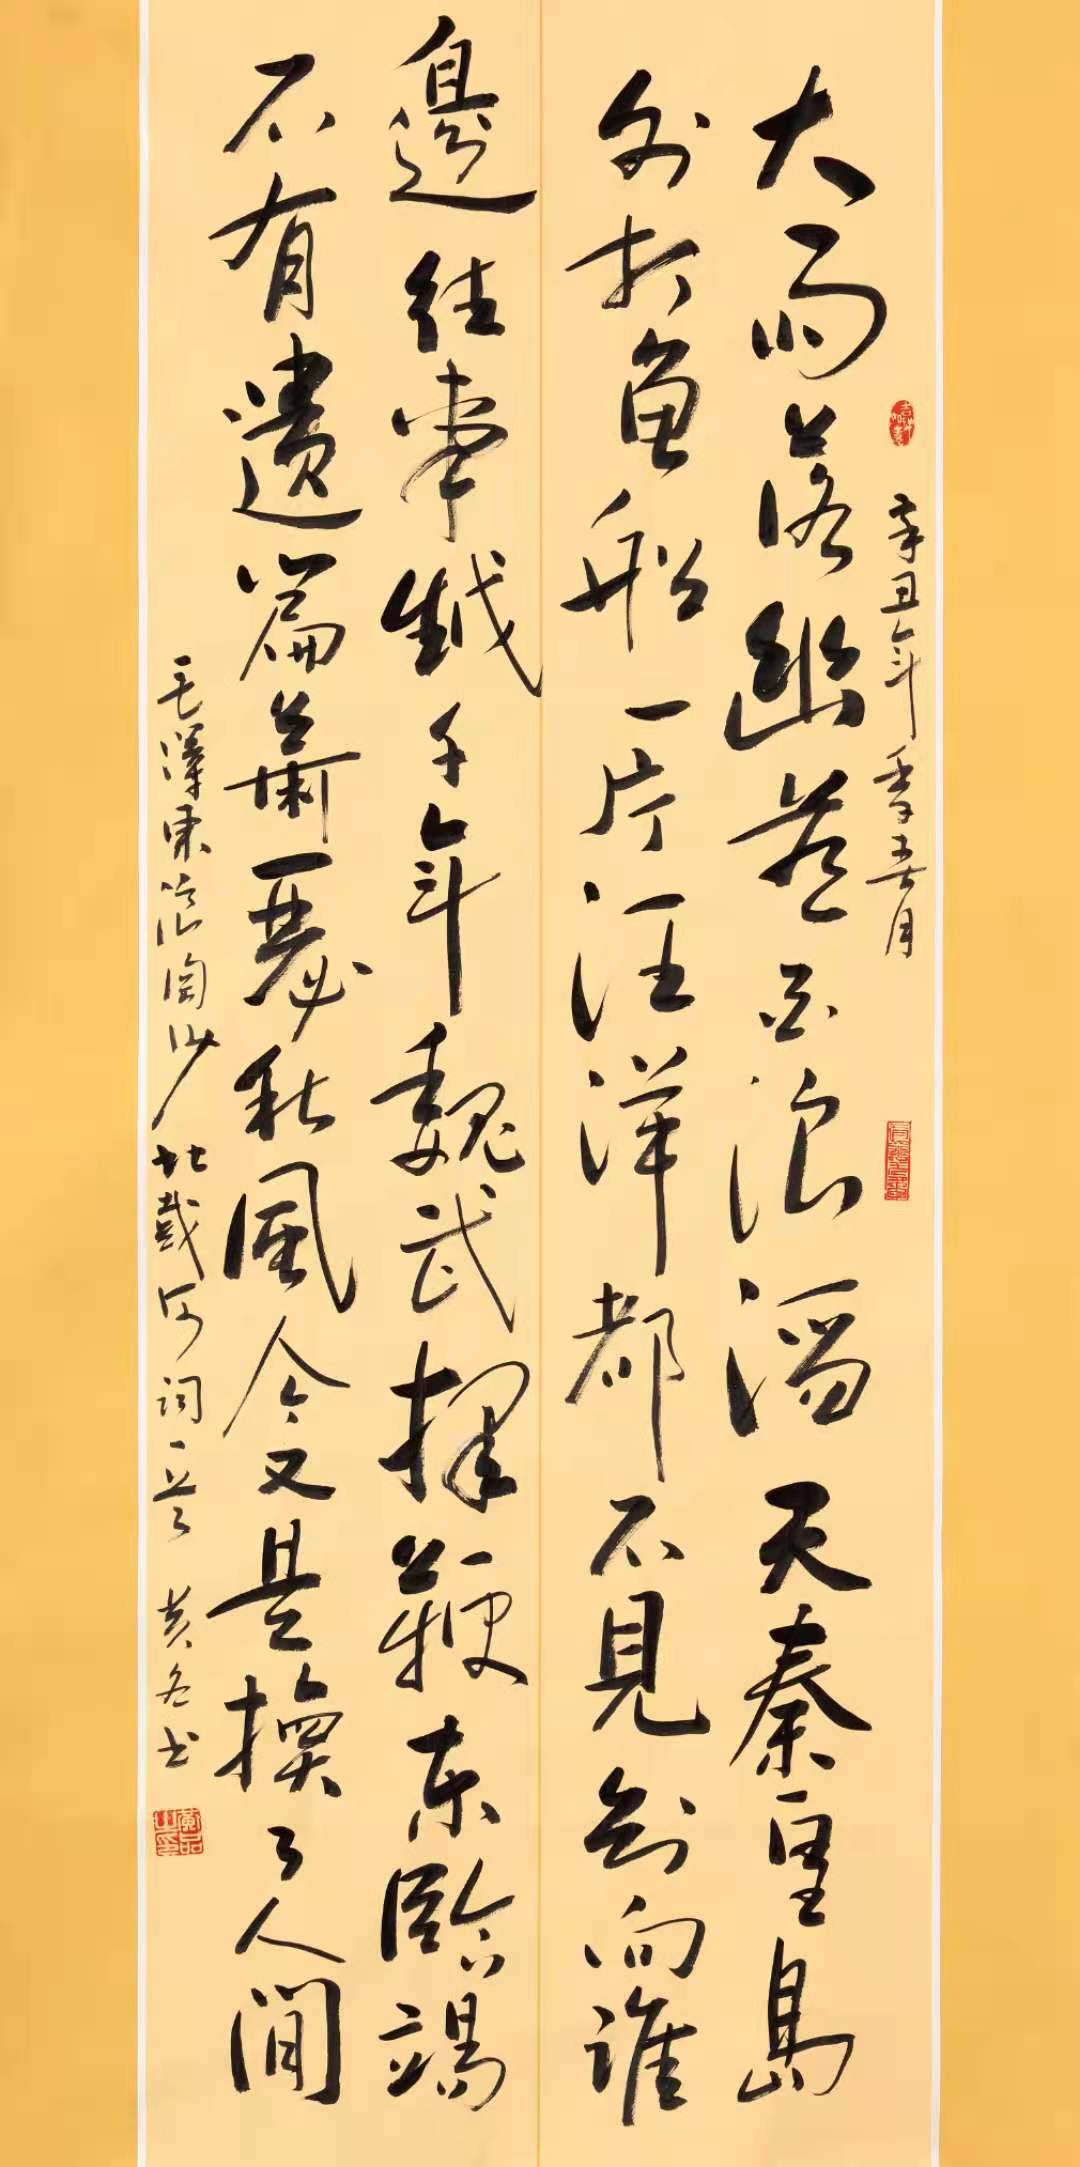 辛丑年季春月
大雨落幽燕白浪滔天秦皇島
外打魚船一片汪洋都不見知向誰
邊往事越千年魏武揮鞭東臨碣
石有遺篇蕭瑟秋風今又是換了人間
毛澤東浪淘沙北戴河詞一首 黄 书
黄品之印